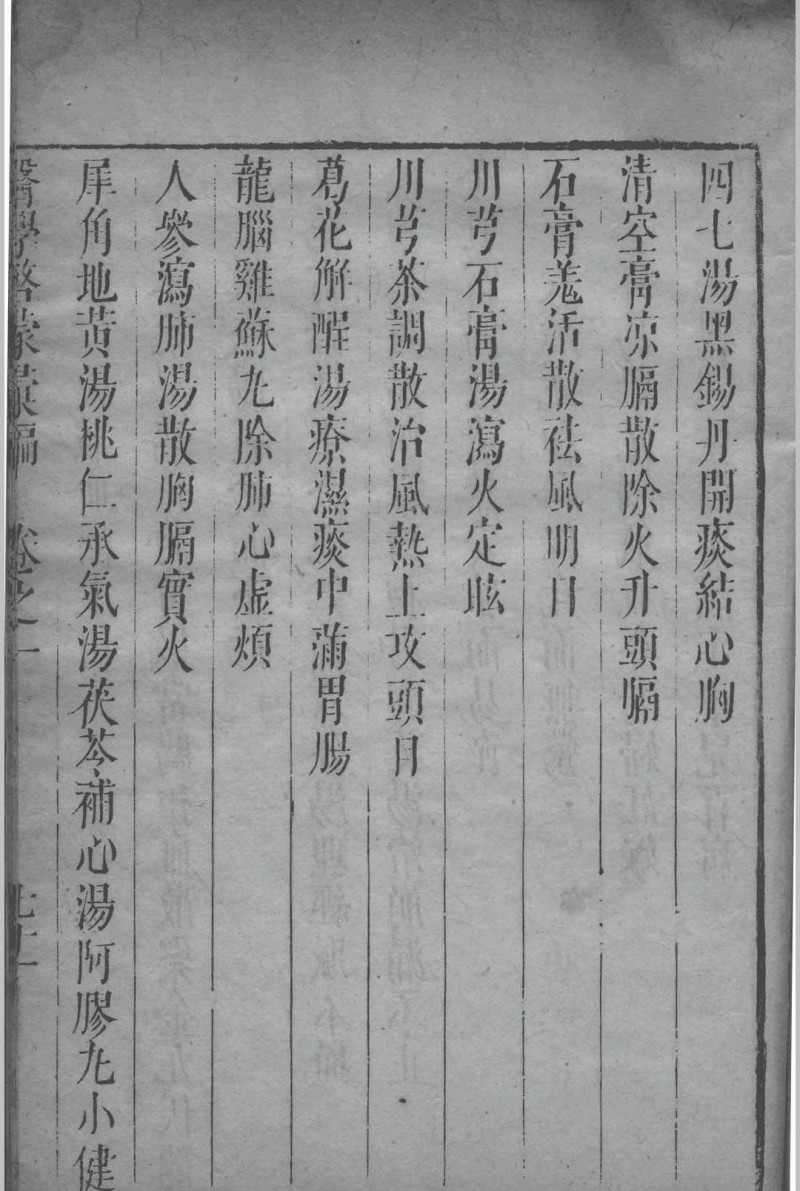 四七湯黑錫丹開痰結心胸
清空膏凉膈散除火升頭膈
石膏羗活散祛風明目
川芎石膏湯瀉火定眩
川芎茶調散治風熱上攻頭目
葛花解酲湯療濕痰中滿胃腸
龍腦雞蘇丸除肺心虛煩
人參瀉肺湯散胸膈實火
犀角地黃湯桃仁承氣湯茯苓補心湯阿膠丸小健
醫學啓蒙彚編 卷之一